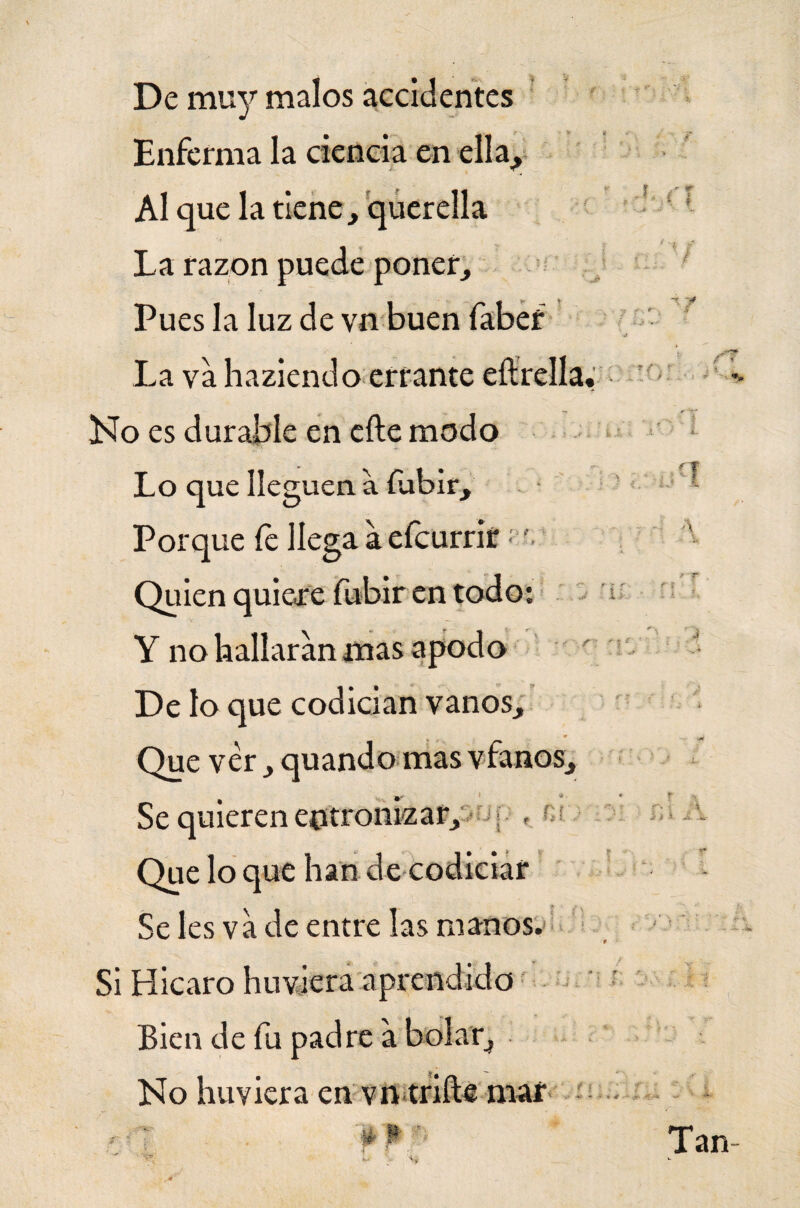 De muy malos accidentes
Enferma la ciencia en ella,
Al que la tiene, querella
La razon puede poner,
Pues la luz de vn buen ſaber
La và haziendo errante eſtrella.
No es durable en eſte modo
Lo que lleguen à ſubir,
Porque ſe llega à eſcurrir
Quien quiere ſubir en todo:
Y no hallaràn mas apodo
De lo que codician vanos,
Que vèr, quando mas vfanos,
Se quieren entronizar,
Que lo que han de codiciar
Se les và de entre las manos.
Si Hicaro huviera aprendido
Bien de ſu padre à bolar,
No huviera en vn triſte mar
Tan-